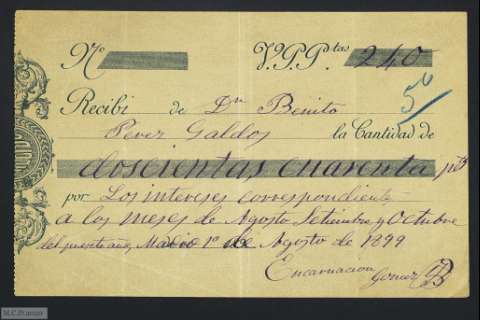 Nº V.º P.P. tas 240
56
Recibí de Dn Benito
Perez Galdos la Cantidad de
doscientas cuarenta pts
por Los intereses correspondiente
a los meses de Agosto Setiembre y Octubre
del preste año, Madrid 1º de Agosto de 1899
Encarnacion Gomez
M.C.Picazo